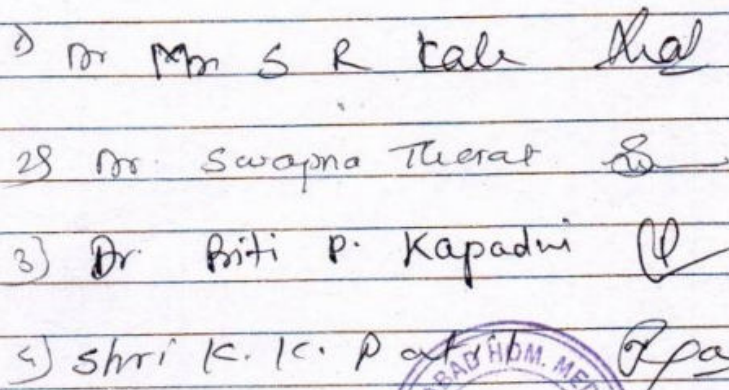 1) Dr Mrs S R Kale
2) Dr. Swapna Thorat
3) Dr. Priti P. Kapadni
4) Shri K. K. Patil
BAD HOM. ME